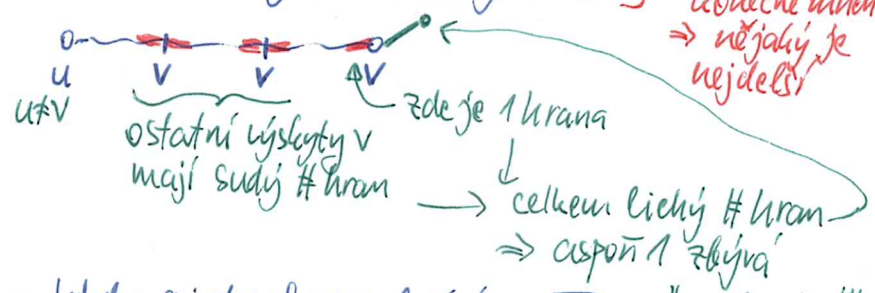 ⇒ nějaký je
nejdelší
u v v v
u≠v
zde je 1 hrana
ostatní výskyty v
mají sudý # hran
celkem lichý # hran
⇒ aspoň 1 zbývá